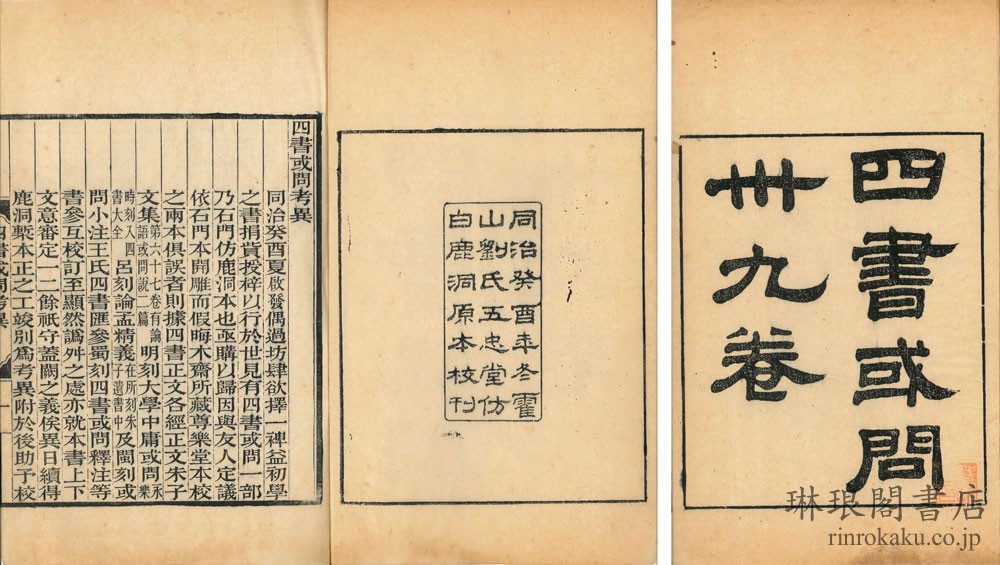 四書或問
卅九卷
同治癸酉年冬霍
山劉氏五忠堂仿
白鹿洞原本校刊
四書或問考異
同治癸酉夏啟發偶過坊肆欲擇一裨益初學
之書捐貲授梓以行於世見有四書或問一部
乃石門仿鹿洞本也亟購以歸因與友人定議
依石門本開雕而假晦木齋所藏尊樂堂本校
之兩本俱誤者則據四書正文各經正文朱子
文集第六十七卷有論語或問說二篇明刻大學中庸或問永樂
時刻入四書大全呂刻論孟精義在所刻朱子遺書中及閩刻或
問小注王氏四書匯參蜀刻四書或問釋注等
書參互校訂至顯然譌舛之處亦就本書上下
文意審定一二餘祇守蓋闕之義俟異日續得
鹿洞槧本正之工竣別為考異附於後助予校
四書或問考異
一
琳琅閣書店
rinrokaku.co.jp